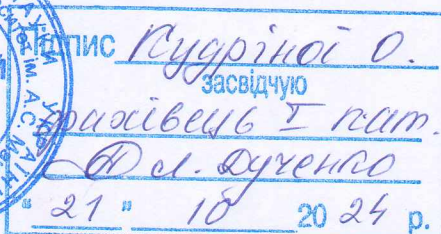 Підпис Кудріної О.
засвідчую
фахівець I кат.
Л. Дученко
"21" 10 2024 р.
ім. А.С. Ма